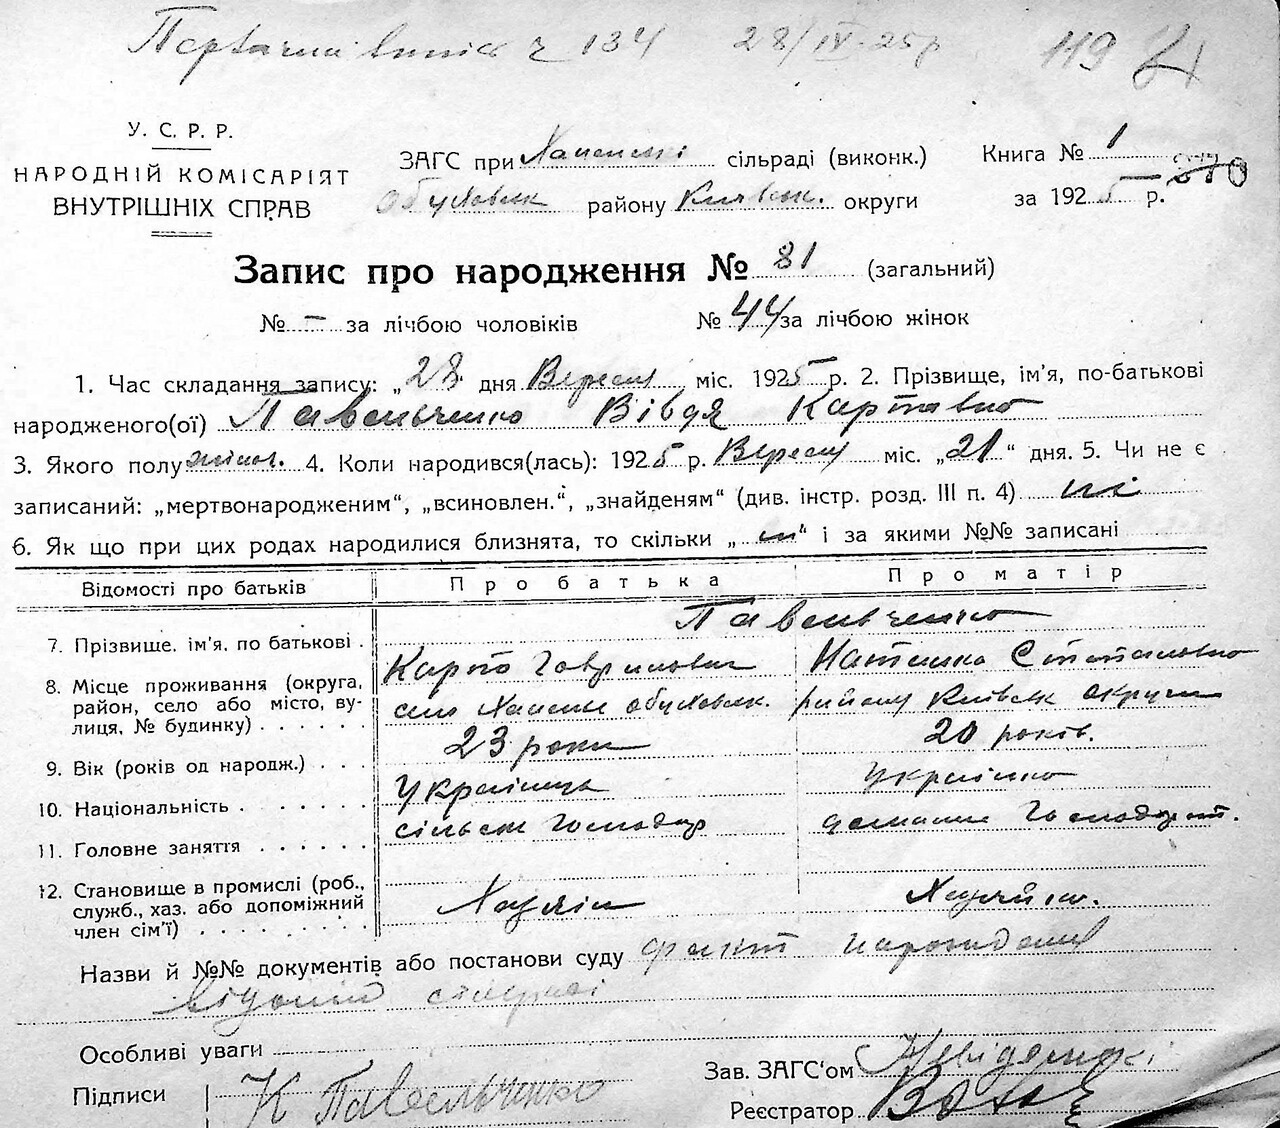 134 28/IV-25р 119
У. С. Р. Р.
НАРОДНІЙ КОМІСАРІЯТ
ВНУТРІШНІХ СПРАВ
ЗАГС при сільраді (виконк.)
Обуховськ району Київськ. округи
Книга № 1
за 1925 р.
Запис про народження № 81 (загальний)
№ – за лічбою чоловіків № 44 за лічбою жінок
1. Час складання запису: „28“ дня Вересня міс. 1925 р. 2. Прізвище, ім’я, по-батькові
народженого(ої) Павельченко Вівдя Карповно
3. Якого полу жіноч. 4. Коли народився(лась): 1925 р. Вересня міс. „21“ дня. 5. Чи не є
записаний: „мертвонародженим“, „всиновлен.“, „знайденям“ (див. інстр. розд. III п. 4) ні
6. Як що при цих родах народилися близнята, то скільки „ “ і за якими №№ записані
Відомості про батьків Про батька Про матір
Павельченко
7. Прізвище, ім’я, по батькові . Карпо Гаврилович Наталка Степановно
8. Місце проживання (округа,
район, село або місто, ву-
лиця, № будинку) . . . . . село Обуховськ. району Київськ округи
9. Вік (років од народж.) . . . 23 роки 20 років.
10. Національність . . . . . . . Українець Українко
11. Головне заняття . . . . . . сільськ господар домашнє господарст.
12. Становище в промислі (роб.,
служб., хаз. або допоміжний
член сім’ї) . . . . . . . . . Хазяїн Хазяйка.
Назви й №№ документів або постанови суду факт народження
відомий сільраді
Особливі уваги
Підписи К Павельченко
Зав. ЗАГС‘ом
Реєстратор